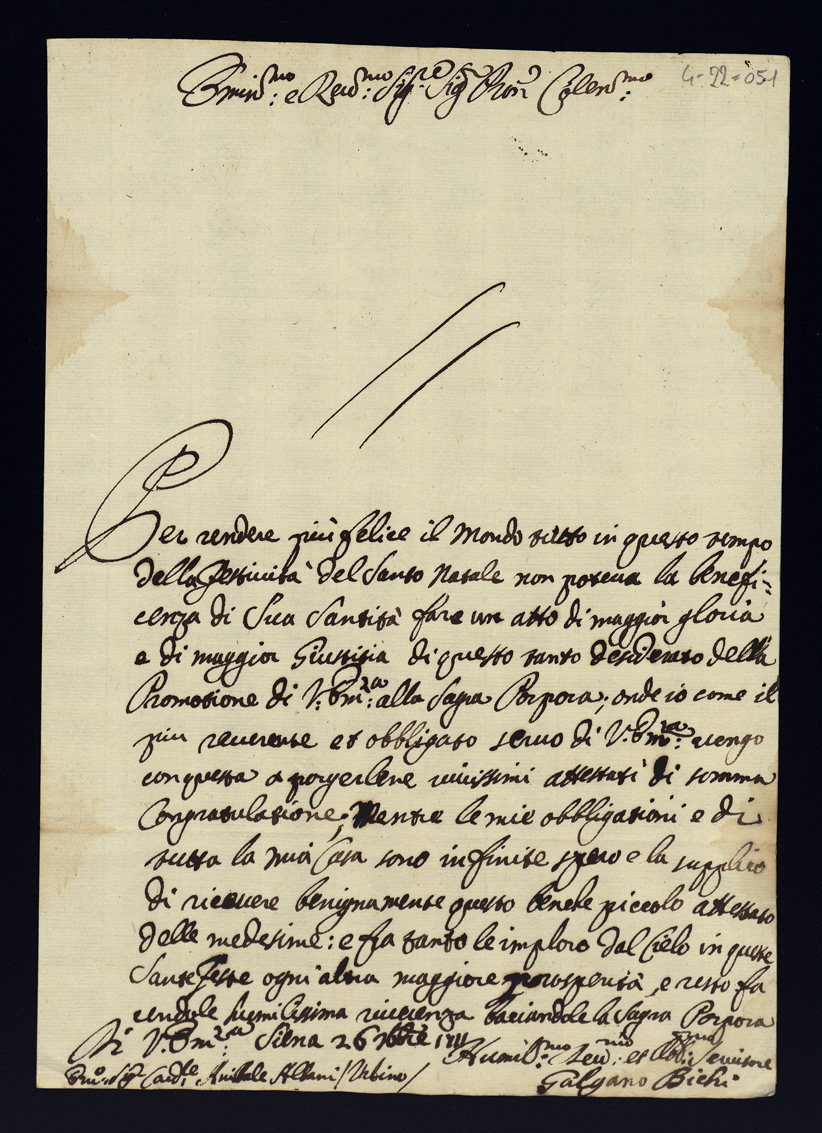 Emin.mo: e Rev.mo: Sig.re Sig.r Pron Colen.mo:
4-22-051
Per rendere più felice il Mondo tutto in questo tempo
della festività del Santo Natale non poteva la benefi-
cenza di Sua Santità fare un atto di maggior gloria
e di maggior Giustitia di questo tanto desiderato della
Promotione di V: Em.za: alla Sagra Porpora; onde io come il
piu reverente et obbligato servo di V: Em.za: vengo
con questa a porgerlene vivissimi attestati di somma
Congratulatione; Mentre le mie obbligationi e di
tutta la mia Casa sono infinite spero e la supplico
di ricevere benignamente questo benche piccolo attestato
delle medesime: e fra tanto le imploro dal Cielo in queste
Sante feste ogni altra maggiore prosperità, e resto fa
cendole humilissima riverenza baciandole la Sagra Porpora
Di V: Em.za: Siena 26 Xbre 1711
Humil.mo: Dev.mo: et Obb.mo: Servitore
Em.o Sig.r Card.le Anibale Albani / Urbino /
Galgano Bichi